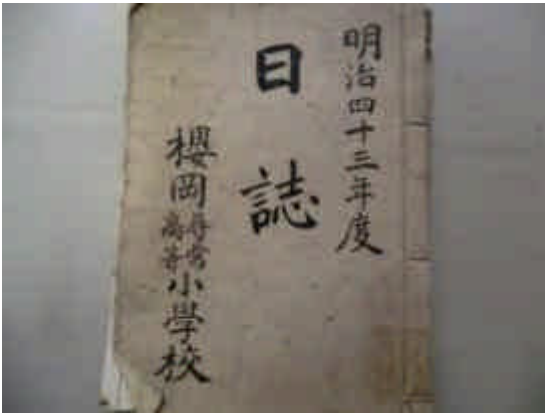 明治四十三年度
日誌
櫻岡尋常高等小學校